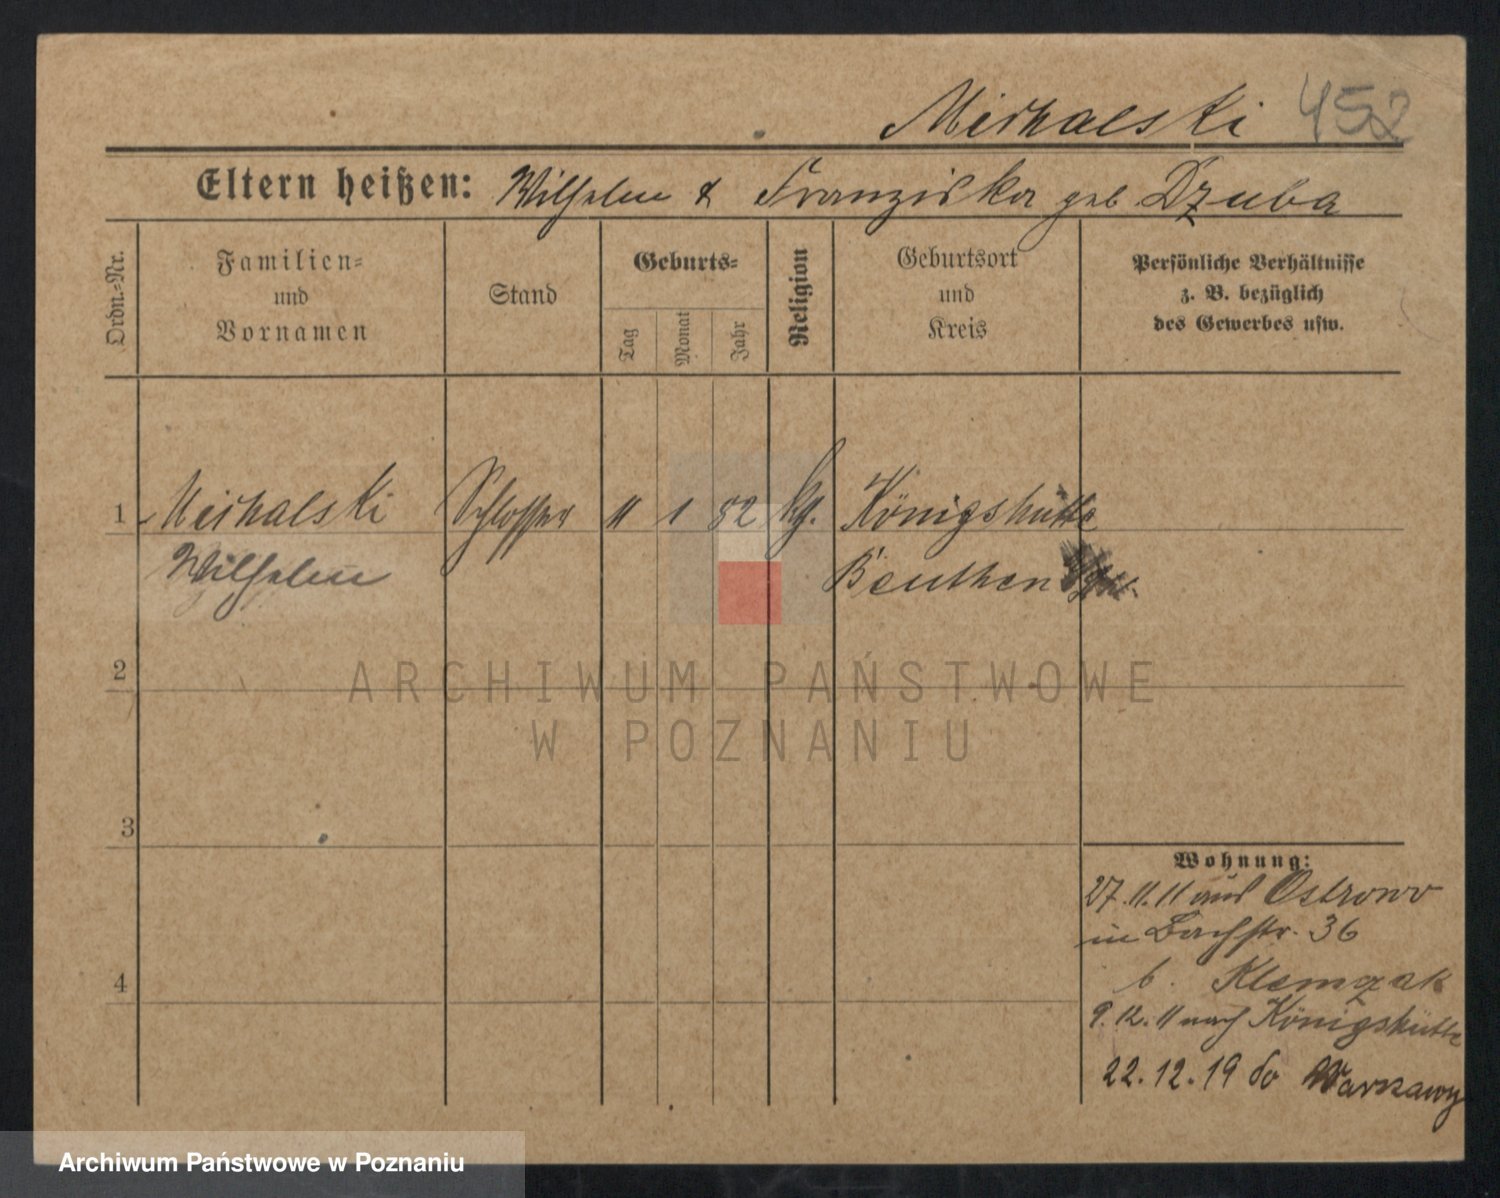 Michalski 452
Eltern heißen: Wilhelm & Franziska geb Dzuba
Ordn.-Nr.
Familien-
und
Vornamen
Stand
Geburts-
Tag
Monat
Jahr
Religion
Geburtsort
und
Kreis
Persönliche Verhältnisse
z. B. bezüglich
des Gewerbes usw.
1 Michalski Schlosser 11 1 82 kg. Königshütte
Wilhelm Beuthen
2
3
4
Wohnung:
27.11.11 aus Ostrowo
in Bachstr. 36
b. Klemczak
9.12.11 nach Königshütte
22.12.19 do Warszawy
ARCHIWUM PAŃSTWOWE
W POZNANIU
Archiwum Państwowe w Poznaniu